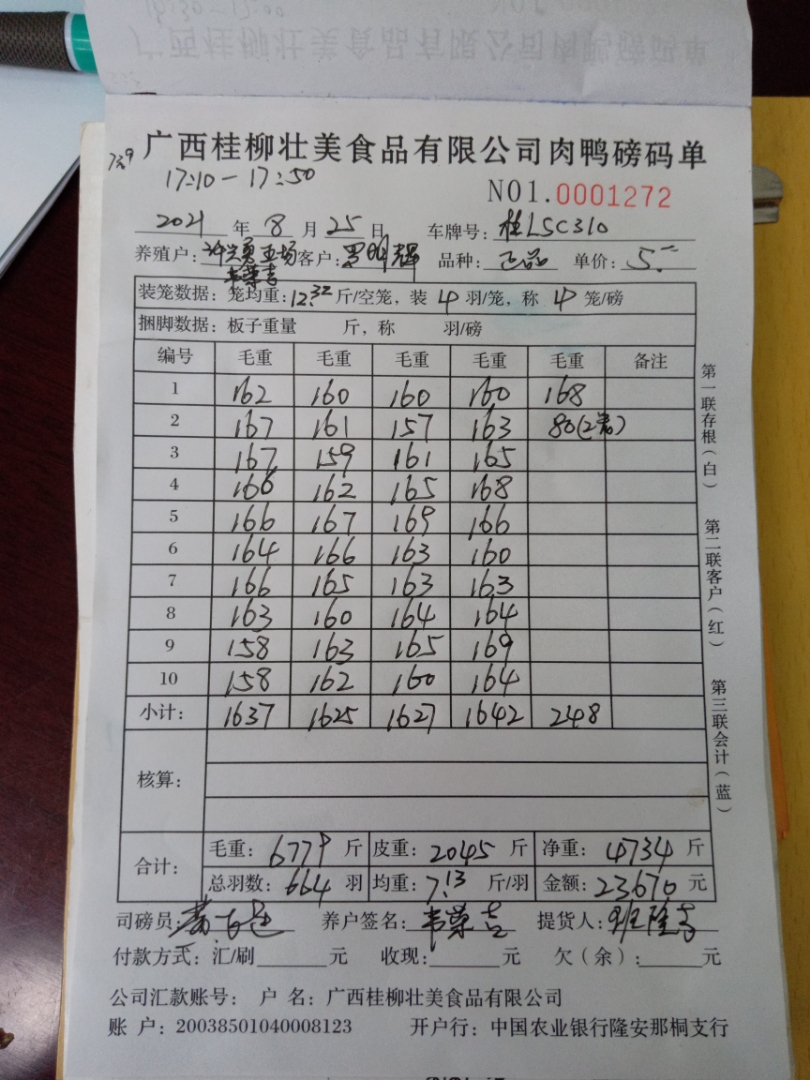 广西桂柳壮美食品有限公司肉鸭磅码单
17:10-17:50
NO1.0001272
2021 年 8 月 25 日 车牌号: 桂LSC310
养殖户: 客户: 罗明辉 品种: 正品 单价: 5.一
韦荣吉
装笼数据: 笼均重: 12.32 斤/空笼, 装 4 羽/笼, 称 4 笼/磅
捆脚数据: 板子重量 斤, 称 羽/磅
编号 毛重 毛重 毛重 毛重 毛重 备注
1 162 160 160 160 168
2 167 161 157 163 80(2笼)
3 167 159 161 165
4 166 162 165 168
5 166 167 169 166
6 164 166 163 160
7 166 165 163 163
8 163 160 164 164
9 158 163 165 169
10 158 162 160 164
小计: 1637 1625 1627 1642 248
核算:
合计: 毛重: 6779 斤 皮重: 2045 斤 净重: 4734 斤
总羽数: 664 羽 均重: 7.13 斤/羽 金额: 23670 元
司磅员: 养户签名: 韦荣吉 提货人:
付款方式: 汇/刷 元 收现: 元 欠(余): 元
公司汇款账号: 户 名: 广西桂柳壮美食品有限公司
账 户: 20038501040008123 开户行: 中国农业银行隆安那桐支行
第一联存根(白)
第二联客户(红)
第三联会计(蓝)